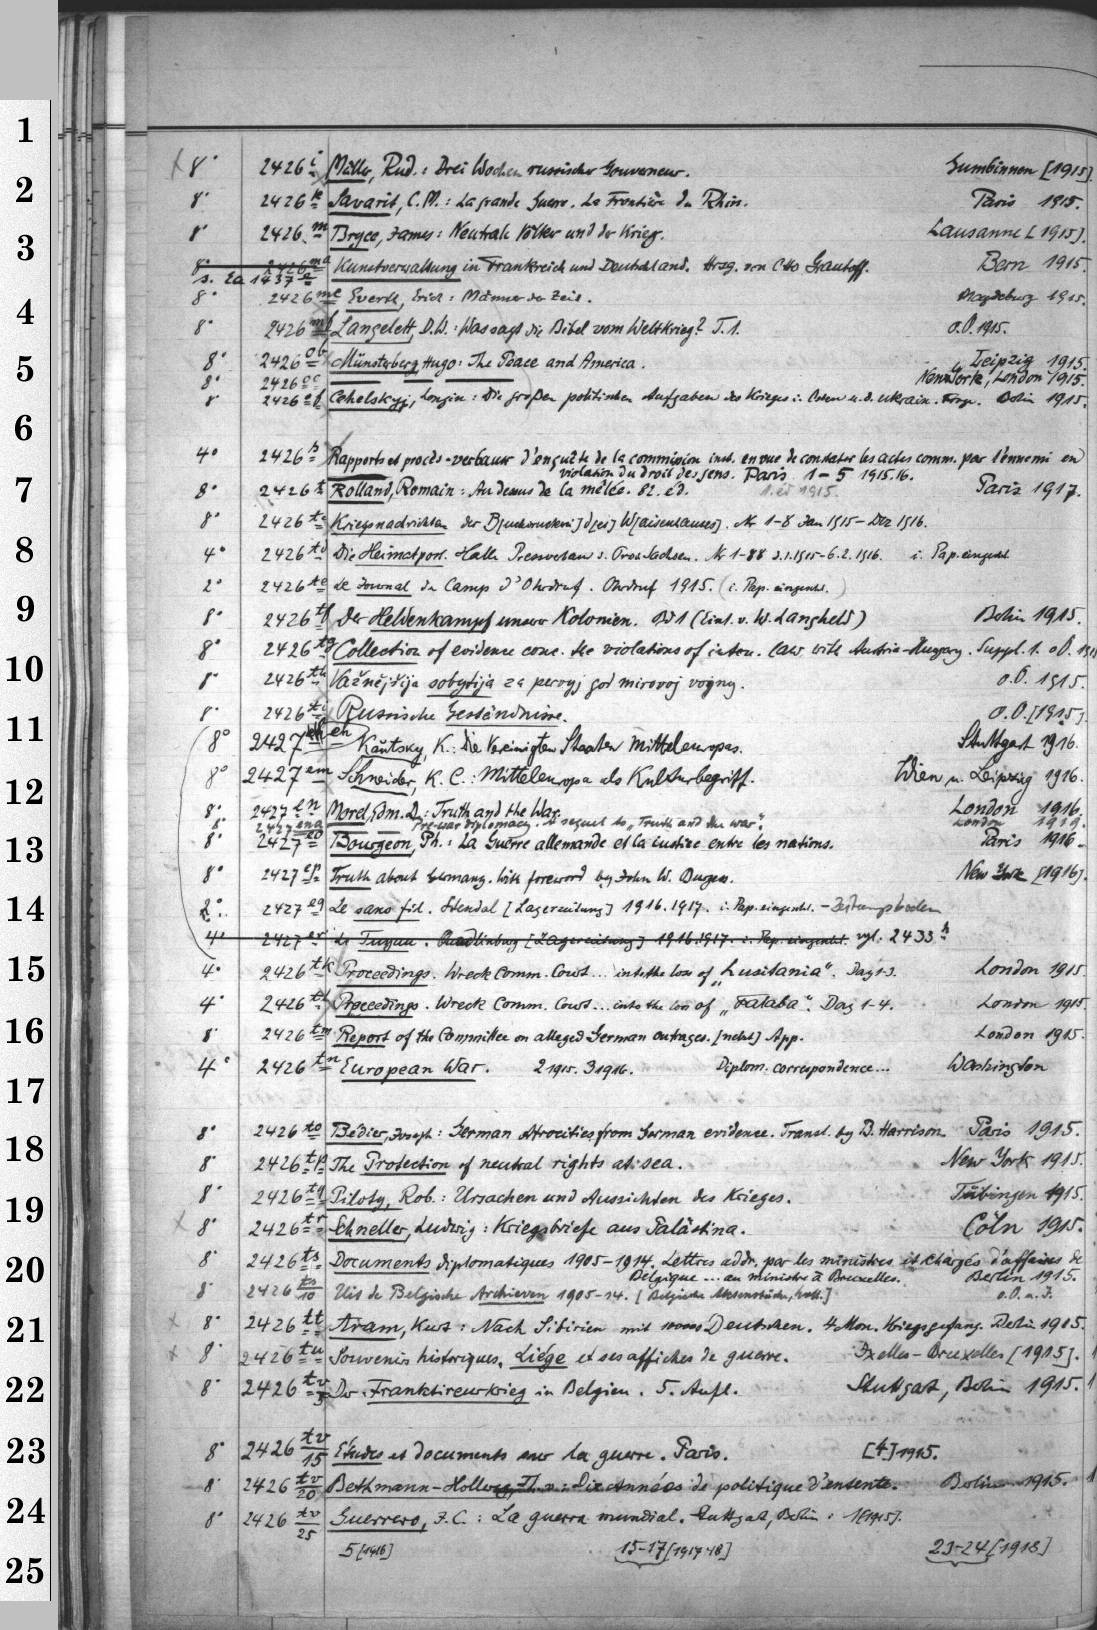 1
2
3
4
5
6
7
8
9
10
11
12
13
14
15
16
17
18
19
20
21
22
23
24
25
8° 2426 i Müller, Rud.: Drei Wochen russischer Gouverneur. Gumbinnen [1915].
8° 2426 k Savarit, C.M.: La grande Guerre. La Frontière du Rhin. Paris 1915.
8° 2426 m Bryce, James: Neutrale Völker und der Krieg. Lausanne [1915].
8° 2426 ma Kunstverwaltung in Frankreich und Deutschland. Hrsg. von Otto Grautoff. Bern 1915.
s. Ea 1437 e
8° 2426 me Everth, Erich: Männer der Zeit. Magdeburg 1915.
8° 2426 Langelett, D.W.: Was sagt die Bibel vom Weltkrieg? T.1. o.O. 1915.
8° 2426 ob Münsterberg, Hugo: The Peace and America. Leipzig 1915.
8° 2426 oc New York, London 1915.
8° 2426 Cehelskyj, Longin: Die großen politischen Aufgaben des Krieges i. Osten u. d. ukrain. Frage. Berlin 1915.
4° 2426 Rapports et procès-verbaux d'enquête de la commission inst. en vue de constater les actes comm. par l'ennemi en
violation du droit des gens. Paris 1-5 1915.16.
8° 2426 t Rolland, Romain: Au dessus de la mêlée. 82. éd. 1. éd. 1915. Paris 1917.
8° 2426 Kriegsnachrichten der B[uchdruckerei] d[es] W[aisenhauses]. Nr 1-8 Jan 1915-Dez 1916.
4° 2426 Die Heimatpost. Halle Presseverban s. Prov. Sachsen. Nr 1-88 3.1.1915-6.2.1916. i. Pap. eingeschl
2° 2426 te Le Journal du Camp d'Ohrdruf. Ohrdruf 1915. (i. Pap. eingeschl.)
8° 2426 tf Der Heldenkampf unserer Kolonien. Bd 1 (Einl. v. W. Langheld) Berlin 1915.
8° 2426 tg Collection of evidence conc. the violations of intern. law with Austria-Hungary. Suppl. 1. o.O. 1915
8° 2426 th Važnějšija sobytija za pervyj god mirovoj vojny. o.O. 1915.
8° 2426 ti Russische Geständnisse. o.O. [1915].
8° 2427 eh Kautsky, K.: Die Vereinigten Staaten Mitteleuropas. Stuttgart 1916.
8° 2427 em Schneider, K.C.: Mitteleuropa als Kulturbegriff. Wien u. Leipzig 1916.
8° 2427 en Morel, Edm. D.: Truth and the War. London 1916.
8° 2427 ena Pre-war diplomacy. A sequel to "Truth and the war". London 1919.
8° 2427 eo Bourgeon, Ph.: La Guerre allemande et la justice entre les nations. Paris 1916.
8° 2427 ep Truth about Germany. With foreword by John W. Burgess. New York [1916].
2° 2427 eq Le sans fil. Stendal [Lagerzeitung] 1916.1917. i. Pap. eingeschl. - Zeitungsboden
4° 2427 er Le Tuyau. Quedlinburg [Lagerzeitung] 1916.1917. i. Pap. eingeschl. vgl. 2433 h
4° 2426 tk Proceedings. Wreck Comm. Court... into the loss of "Lusitania". Day 1-3. London 1915
4° 2426 tl Proceedings. Wreck Comm. Court... into the loss of "Falaba". Day 1-4. London 1915
8° 2426 tm Report of the Committee on alleged German outrages. [nebst] App. London 1915.
4° 2426 tn European War. 2 1915. 3 1916. Diplom. correspondence... Washington
8° 2426 to Bédier, Joseph: German Atrocities from German evidence. Transl. by B. Harrison Paris 1915.
8° 2426 tp The Protection of neutral rights at sea. New York 1915.
8° 2426 tq Piloty, Rob.: Ursachen und Aussichten des Krieges. Tübingen 1915.
8° 2426 tr Schneller, Ludwig: Kriegsbriefe aus Palästina. Cöln 1915.
8° 2426 ts Documents diplomatiques 1905-1914. Lettres addr. par les ministres et chargés d'affaires de
Belgique ... au ministre à Bruxelles. Berlin 1915.
8° 2426 ts/10 Uit de Belgische Archieven 1905-14. [Belgische Aktenstücke, holl.] o.O. u. J.
8° 2426 tt Aram, Kurt: Nach Sibirien mit 100000 Deutschen. 4 Mon. Kriegsgefang. Berlin 1915.
8° 2426 tu Souvenirs historiques. Liége et ses affiches de guerre. Ixelles-Bruxelles [1915].
8° 2426 tv/5 Der Franktireurkrieg in Belgien. 5. Aufl. Stuttgart, Berlin 1915.
8° 2426 tv/15 Études et documents sur la guerre. Paris. [4] 1915.
8° 2426 tv/20 Bethmann-Hollweg, Th. v.: Dix Années de politique d'entente. Berlin 1915.
8° 2426 tv/25 Guerrero, J.C.: La guerra mundial. Stuttgart, Berlin: 1[1915].
5 [1916] 15-17 [1917-18] 23-24 [1918]